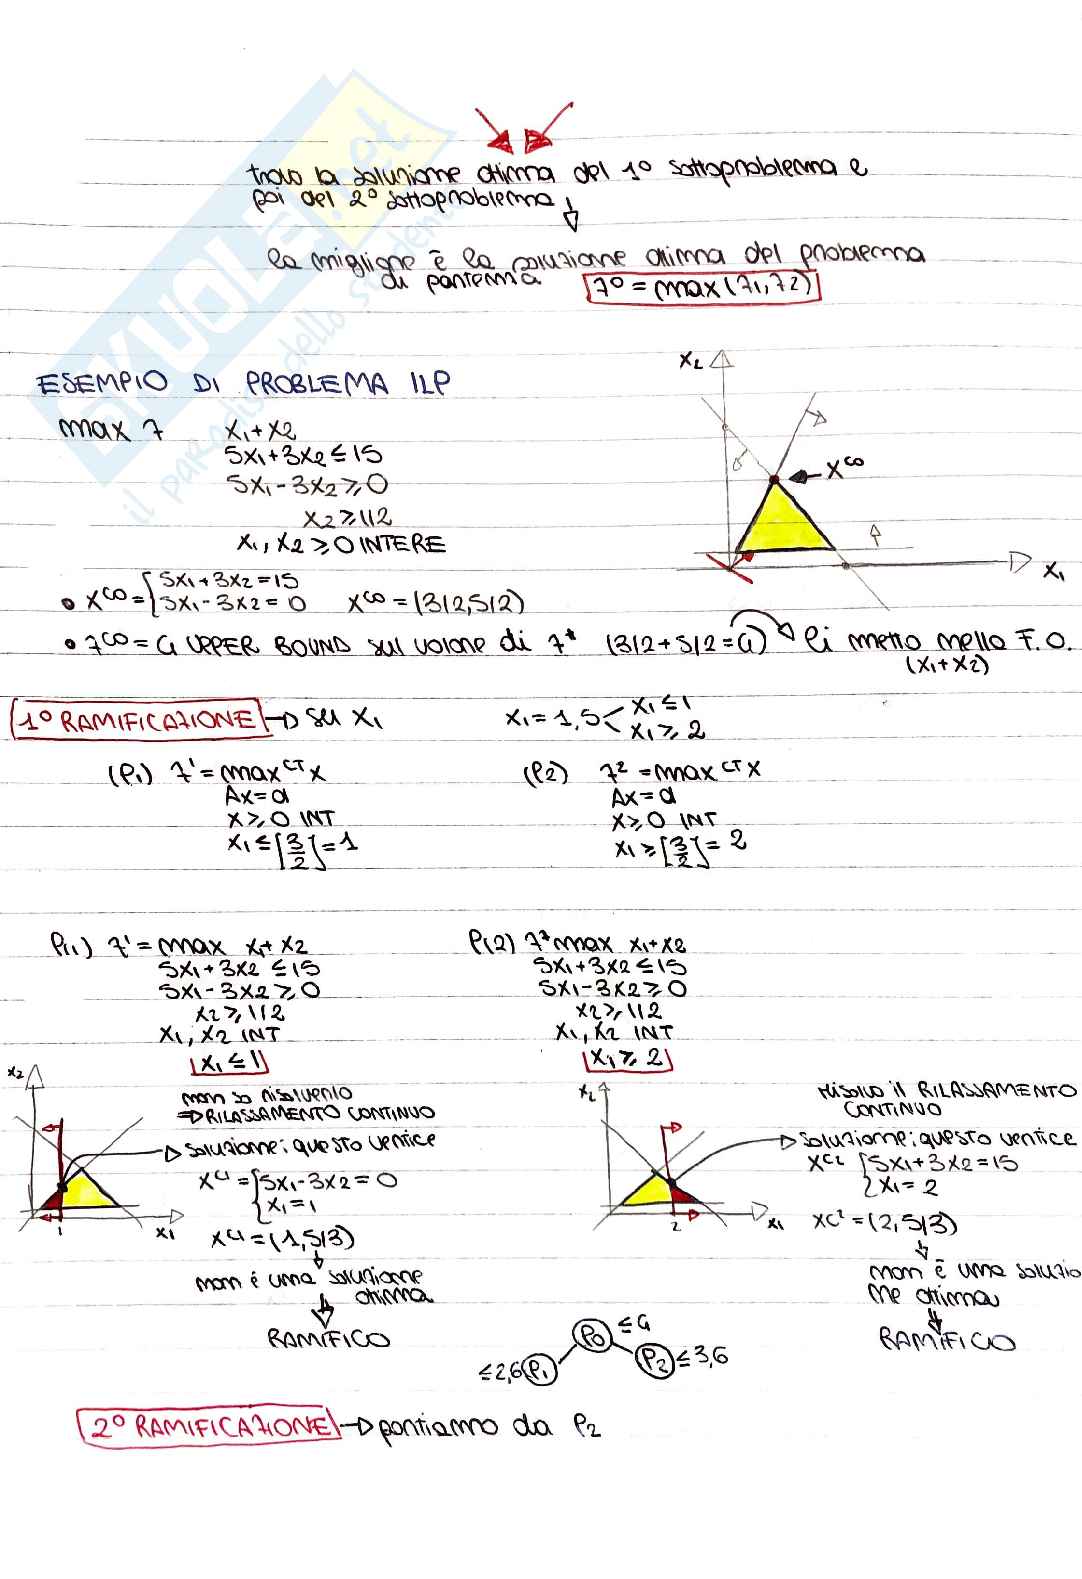 trovo la soluzione ottima del 1° sottoproblema e
poi del 2° sottoproblema
la migliore è la soluzione ottima del problema
di partenza z° = max (z1, z2)
ESEMPIO DI PROBLEMA ILP
max z x1 + x2
5x1 + 3x2 ≤ 15
5x1 - 3x2 ≥ 0
x2 ≥ 1/2
x1, x2 ≥ 0 INTERE
x2
x^C0
x1
• x^C0 = { 5x1 + 3x2 = 15
5x1 - 3x2 = 0 x^C0 = (3/2, 5/2)
• z^C0 = 4 UPPER BOUND sul valore di z* (3/2 + 5/2 = 4) li metto nella F.O.
(x1 + x2)
1° RAMIFICAZIONE → su x1 x1 = 1,5 < x1 ≤ 1
x1 ≥ 2
(P1) z¹ = max c^T x
Ax = d
x ≥ 0 INT
x1 ≤ [3/2] = 1
(P2) z² = max c^T x
Ax = d
x ≥ 0 INT
x1 ≥ [3/2] = 2
P(1) z¹ = max x1 + x2
5x1 + 3x2 ≤ 15
5x1 - 3x2 ≥ 0
x2 ≥ 1/2
x1, x2 INT
x1 ≤ 1
P(2) z² max x1 + x2
5x1 + 3x2 ≤ 15
5x1 - 3x2 ≥ 0
x2 ≥ 1/2
x1, x2 INT
x1 ≥ 2
x2
1
x1
non so risolverlo
⇒ RILASSAMENTO CONTINUO
→ soluzione: questo vertice
x^C1 = { 5x1 - 3x2 = 0
x1 = 1
x^C1 = (1, 5/3)
non è una soluzione
ottima
RAMIFICO
x2
2
x1
risolvo il RILASSAMENTO
CONTINUO
→ soluzione: questo vertice
x^C2 { 5x1 + 3x2 = 15
x1 = 2
x^C2 = (2, 5/3)
non è una soluzio
ne ottima
RAMIFICO
P0 ≤ 4
≤ 2,6 P1 P2 ≤ 3,6
2° RAMIFICAZIONE → partiamo da P2
SKUOLA.net
il paradiso dello studente